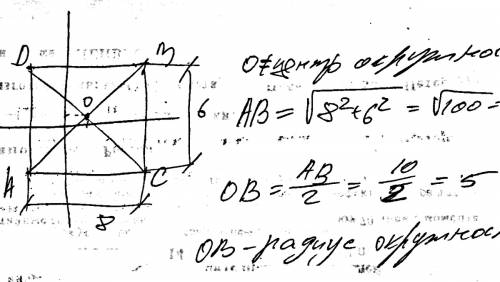 D
B
O
6
A
C
8
O центр окружнос
AB = √8²+6² = √100 =
OB = AB/2 = 10/2 = 5
OB - радиус окружнос